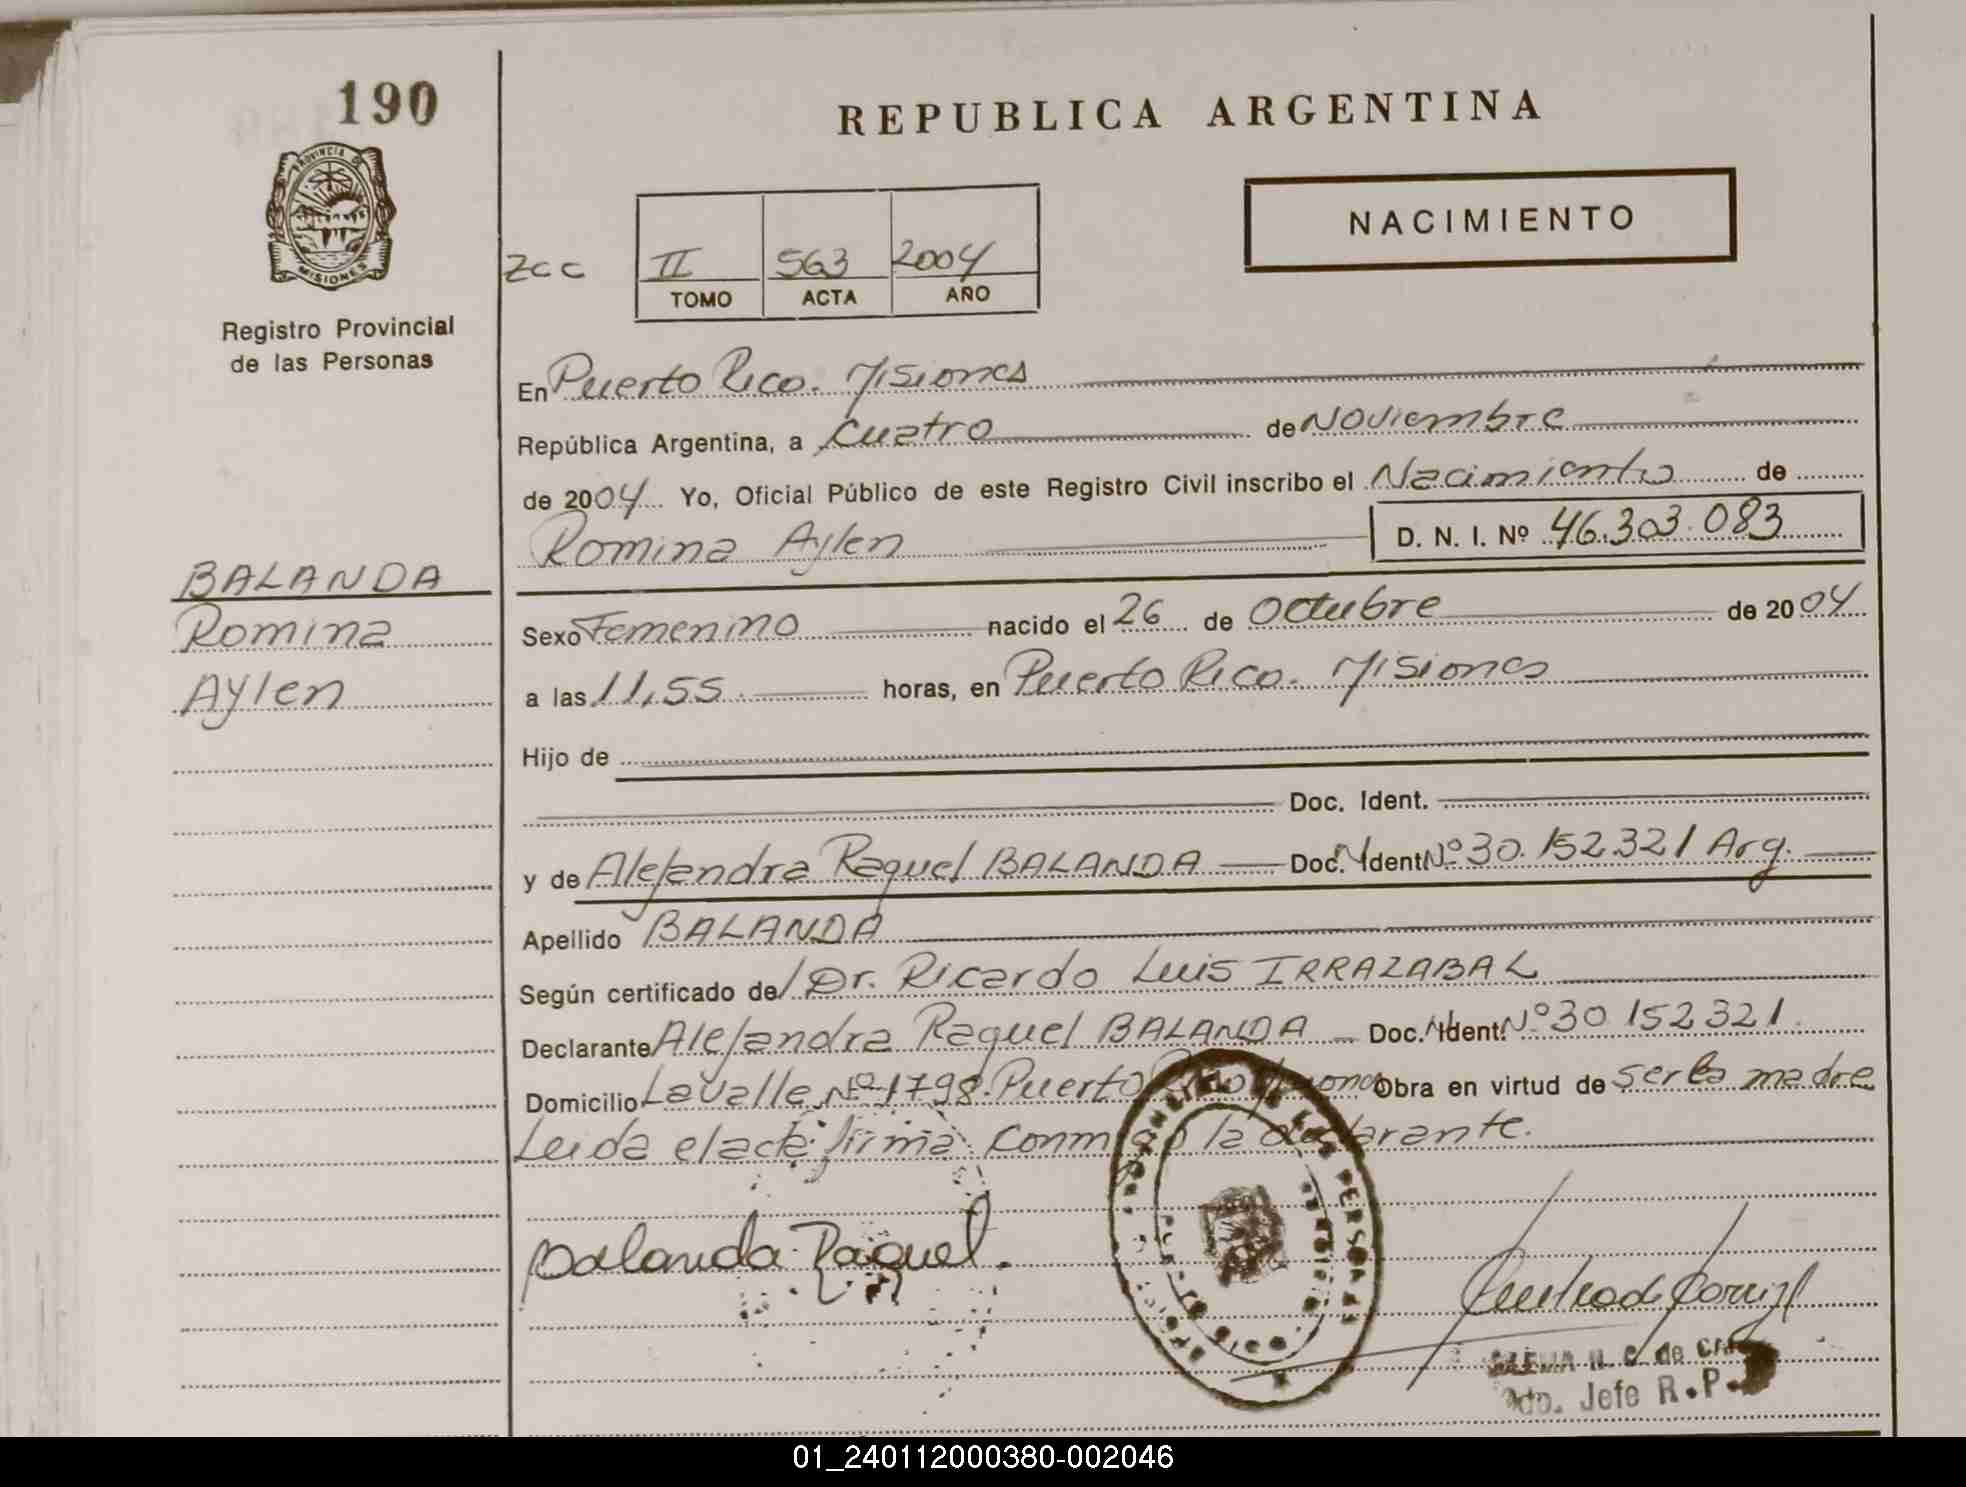 190
REPUBLICA ARGENTINA
PROVINCIA DE
MISIONES
NACIMIENTO
zcc
II 563 2004
TOMO ACTA AÑO
Registro Provincial
de las Personas
En Puerto Rico. Misiones
República Argentina, a Cuatro de Noviembre
de 2004 Yo, Oficial Público de este Registro Civil inscribo el Nacimiento de
Romina Aylen D. N. I. Nº 46.303.083
BALANDA
Romina
Aylen
Sexo Femenino nacido el 26 de Octubre de 2004
a las 11,55 horas, en Puerto Rico. Misiones
Hijo de
Doc. Ident.
y de Alejandra Raquel BALANDA Doc. Ident Nº 30.152.321 Arg.
Apellido BALANDA
Según certificado de Dr. Ricardo Luis IRRAZABAL
Declarante Alejandra Raquel BALANDA Doc. Ident. Nº 30 152 321
Domicilio Lavalle Nº 1798. Puerto Rico Obra en virtud de ser la madre
Leida el acta firma conmigo la declarante.
Balanda Raquel.
PERSONAS
de
Jefe R.P.
01_240112000380-002046